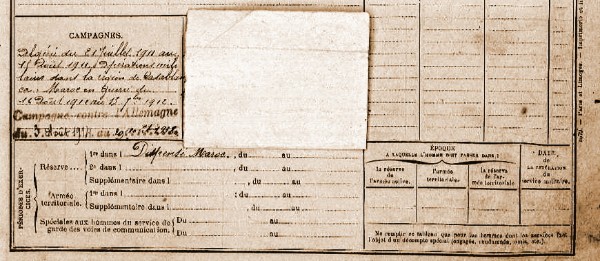 CAMPAGNES.
Algérie du 21 Juillet 1911 au
15 Août 1911. Opérations mili
taires dans la région de Casablan
ca: Maroc en Guerre du
16 Août 1911 au 13 7bre 1912.
Campagne contre l'Allemagne
du 3 Août 1914 au
PÉRIODES D'EXERCICES.
Réserve
1re dans l Dispensé Maroc, du au
2e dans l , du au
Supplémentaire dans l , du au
Armée territoriale.
1re dans l , du au
Supplémentaire dans l , du au
Spéciales aux hommes du service de
garde des voies de communication.
Du au
Du au
ÉPOQUE
A LAQUELLE L'HOMME DOIT PASSER DANS:
la réserve
de l'armée active.
l'armée
territoriale.
la réserve
de l'ar-
mée territoriale.
DATE
DE LA LIBÉRATION
du
service militaire.
Ne remplir ce tableau que pour les hommes dont les services font
l'objet d'un décompte spécial (engagés, omis, etc.).